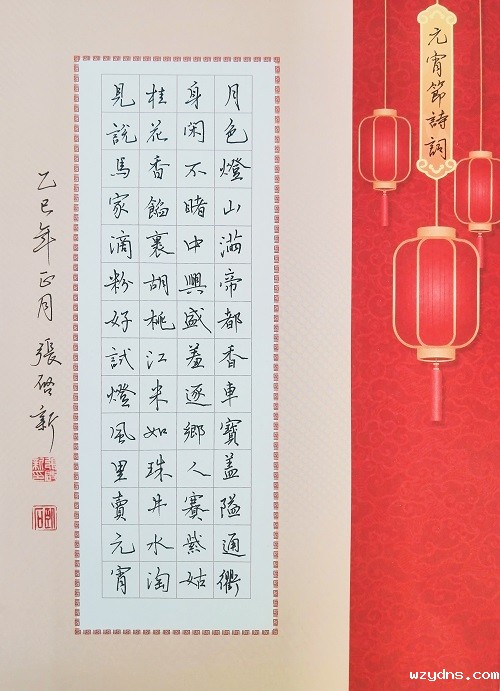 元宵節詩詞
月色燈山滿帝都香車寶蓋隘通衢
身閑不睹中興盛羞逐鄉人賽紫姑
桂花香餡裹胡桃江米如珠井水淘
見說馬家滴粉好試燈風里賣元宵
乙巳年正月 張啓新
wzydns.com